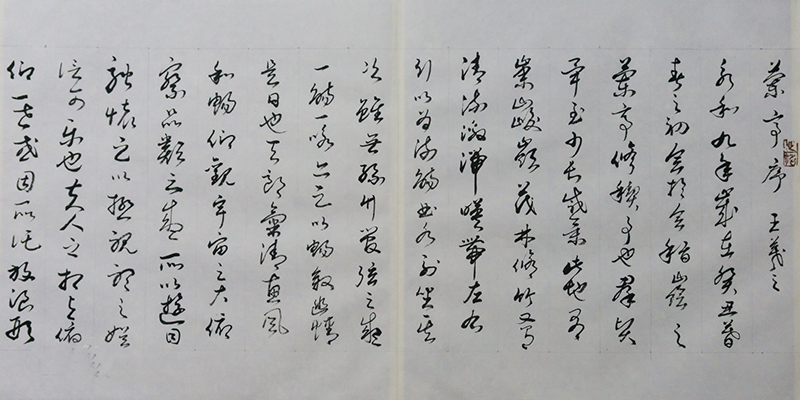 蘭亭序 王羲之
永和九年歲在癸丑暮
春之初會於會稽山陰之
蘭亭脩禊事也群賢
畢至少長咸集此地有
崇山峻嶺茂林脩竹又有
清流激湍暎帶左右
引以為流觴曲水列坐其
次雖無絲竹管弦之盛
一觴一詠亦足以暢敘幽情
是日也天朗氣清惠風
和暢仰觀宇宙之大俯
察品類之盛所以遊目
騁懷足以極視聽之娛
信可樂也夫人之相與俯
仰一世或因所託放浪形